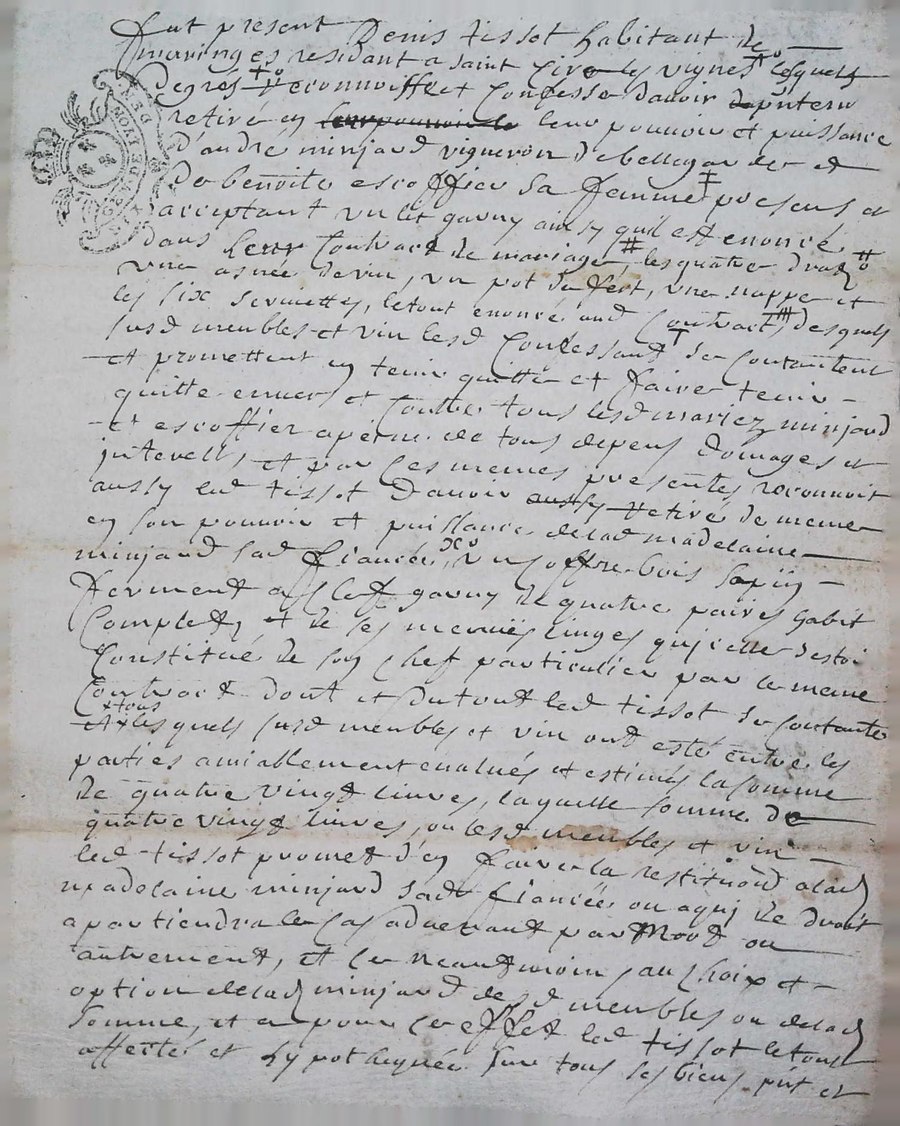 fut present Denis tissot habitant de
maringes residant a saint Ciro les vignes lesquels
Degrés reconnoisset Confesse davoir
retiré en leur pouvoir et puissance
D'andre minjard vigneron de bellegarde et
De benoite escoffier sa femme presens et
acceptant un lit garny ainsy qu'il est enoncé
dans leur Contract de mariage # les quatre draps
une asnée de vin, un pot de fert, une nappe et
les six serviettes, le tout enoncé aud Contract, desquels
susd meubles et vin lesd Confessand se Contantent
et promettent en tenir quitte et faire tenir
quitte envers et Contre tous lesd mariez minjard
et escoffier apeine de tous depens domages et
interests, et par ces memes presentes reconnoit
aussy led tissot D'avoir aussy retiré de meme
en son pouvoir et puissance de lad madelaine
minjard sad fiancée, un coffre bois sapiĳ
ferment a clef garny de quatre paires habit
Complet, et de ses menües linges qu'icelle s'estoi
Constitué de son chef particulier par le meme
Contract dont et du tout led tissot se Contante
xtous
et x lesquels susd meubles et vin ont esté entre les
parties amiablement evalués et estimés la somme
De quatre vingt livres, laquelle somme de
quatre vingt livres, ou lesd meubles et vin
led tissot promet d'en faire la restituon a lad
madelaine minjard sadt fiancée ou aquj de droit
apartiendra le Cas advenant par Mort ou
autrement, et ce neantmoin au choix et
option de lad minjard desd meubles ou de lad
somme, et a pour ce effet led tissot le tout
affecté et hypothequée sur tous ses biens pnt et